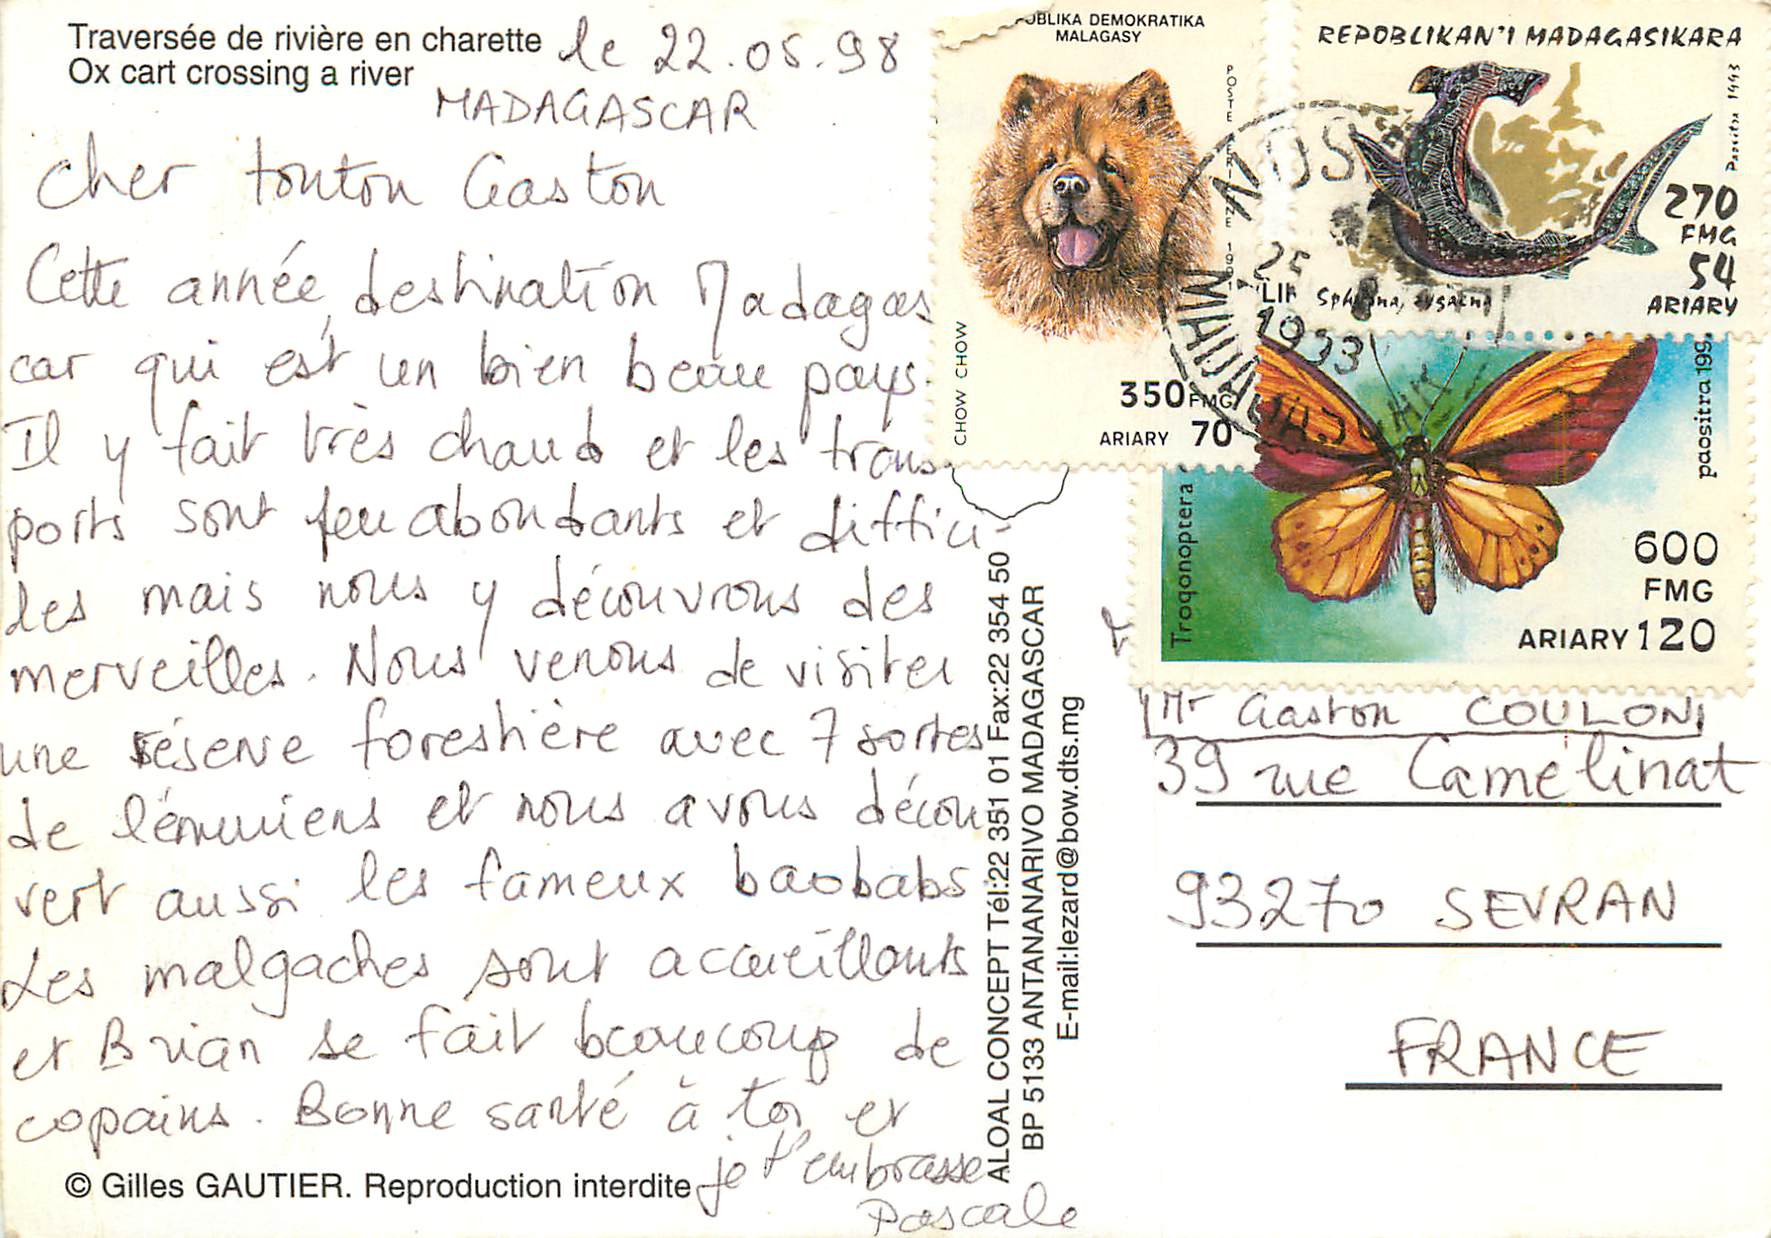 Traversée de rivière en charette
Ox cart crossing a river
le 22.05.98
MADAGASCAR
Cher tonton Gaston
Cette année, destination Madagas
car qui est un bien beau pays.
Il y fait très chaud et les trans-
ports sont peu abondants et diffici-
les mais nous y découvrons des
merveilles. Nous venons de visiter
une réserve forestière avec 7 sortes
de lémuriens et nous avons décou
vert aussi les fameux baobabs
Les malgaches sont accueillants
et Brian se fait beaucoup de
copains. Bonne santé à toi et
je t'embrasse
Pascale
© Gilles GAUTIER. Reproduction interdite
ALOAL CONCEPT Tél:22 351 01 Fax:22 354 50
BP 5133 ANTANANARIVO MADAGASCAR
E-mail:lezard@bow.dts.mg
OBLIKA DEMOKRATIKA
MALAGASY
CHOW CHOW
350 FMG
ARIARY 70
REPOBLIKAN'I MADAGASIKARA
Paositra 1993
270
FMG
54
ARIARY
Troqonoptera
paositra 199
600
FMG
ARIARY 120
25
1993
Mr Gaston COULON
39 rue Camélinat
93270 SEVRAN
FRANCE